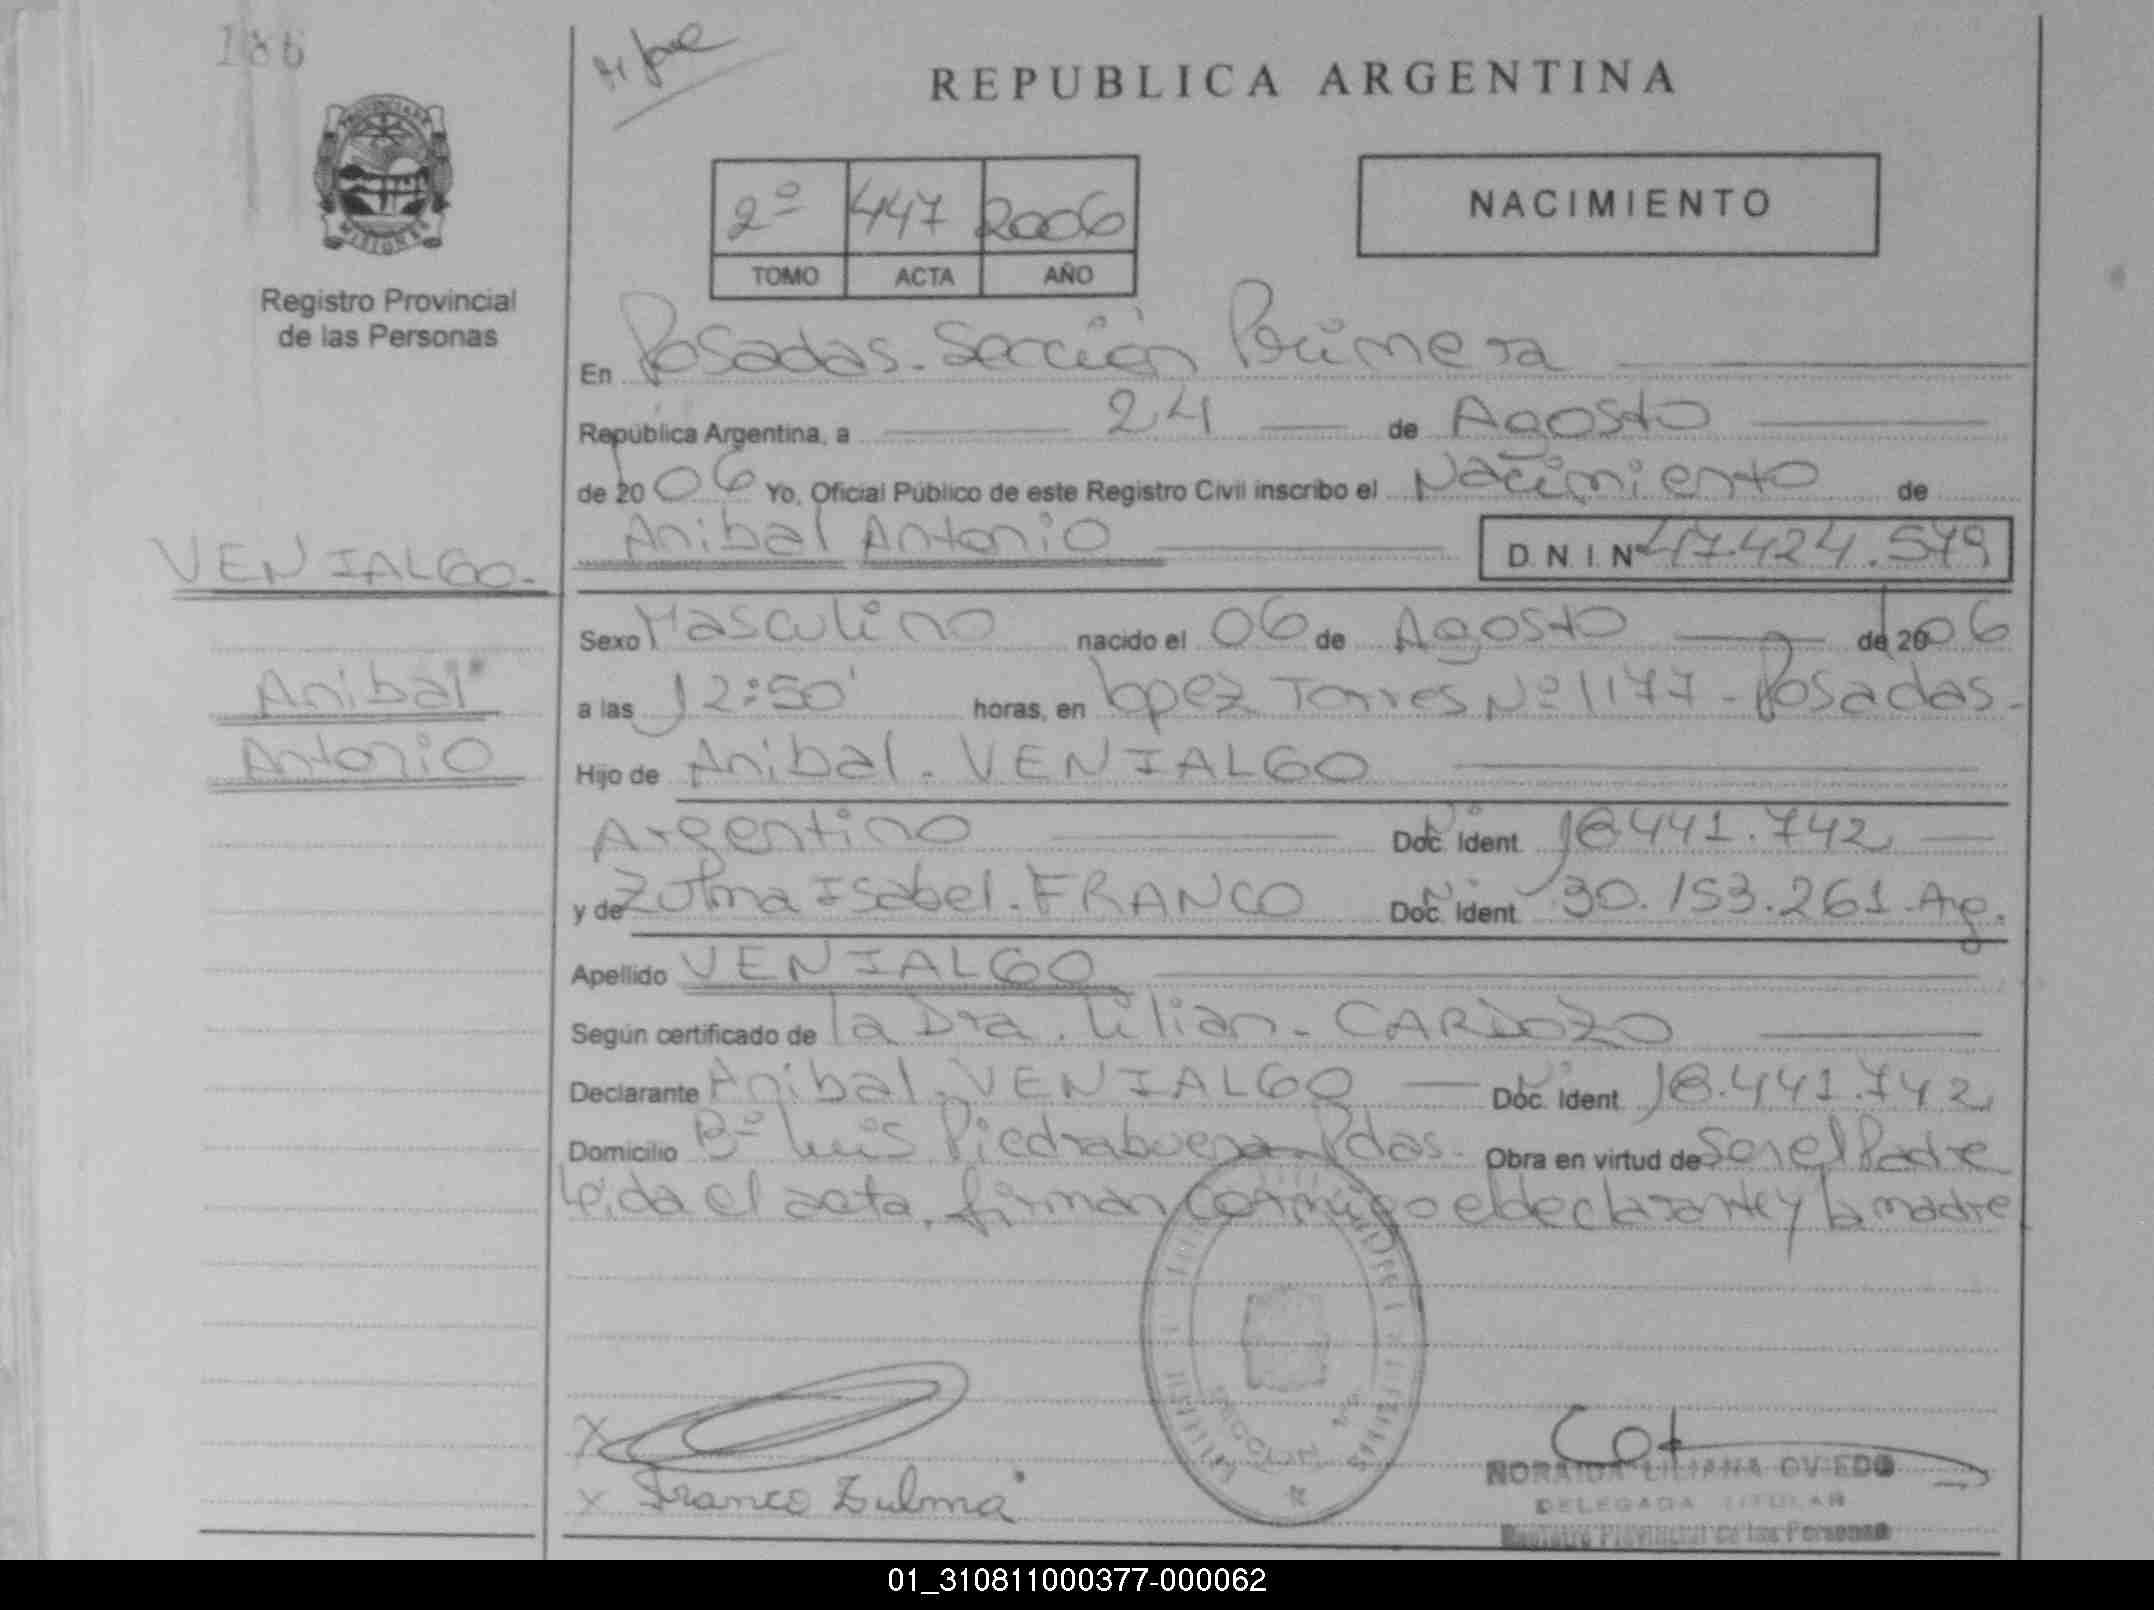 186
REPUBLICA ARGENTINA
PROVINCIA DE
MISIONES
Registro Provincial
de las Personas
2º 447 2006
TOMO ACTA AÑO
NACIMIENTO
En Posadas. Sección Primera
República Argentina, a 24 de Agosto
de 2006 Yo, Oficial Público de este Registro Civil inscribo el Nacimiento de
VENIALGO.
Anibal Antonio D. N. I. Nº 47.424.579
Sexo Masculino nacido el 06 de Agosto de 2006
Anibal
Antonio
a las 12:50' horas, en Lopez Torres Nº 1177 - Posadas.
Hijo de Anibal. VENIALGO
Argentino Doc. Ident. 18.441.742
y de Zulma Isabel. FRANCO Doc. Ident. 30.153.261 Arg.
Apellido VENIALGO
Según certificado de la Dra. Lilian. CARDOZO
Declarante Anibal. VENIALGO Doc. Ident. 18.441.742
Domicilio Bº Luis Piedrabuena Pdas. Obra en virtud de Ser el Padre
Leida el acta, firman conmigo el declarante y la madre
X
X Franco Zulma
NORAIDA LILIANA OVIEDO
DELEGADA TITULAR
Registro Provincial de las Personas
01_310811000377-000062